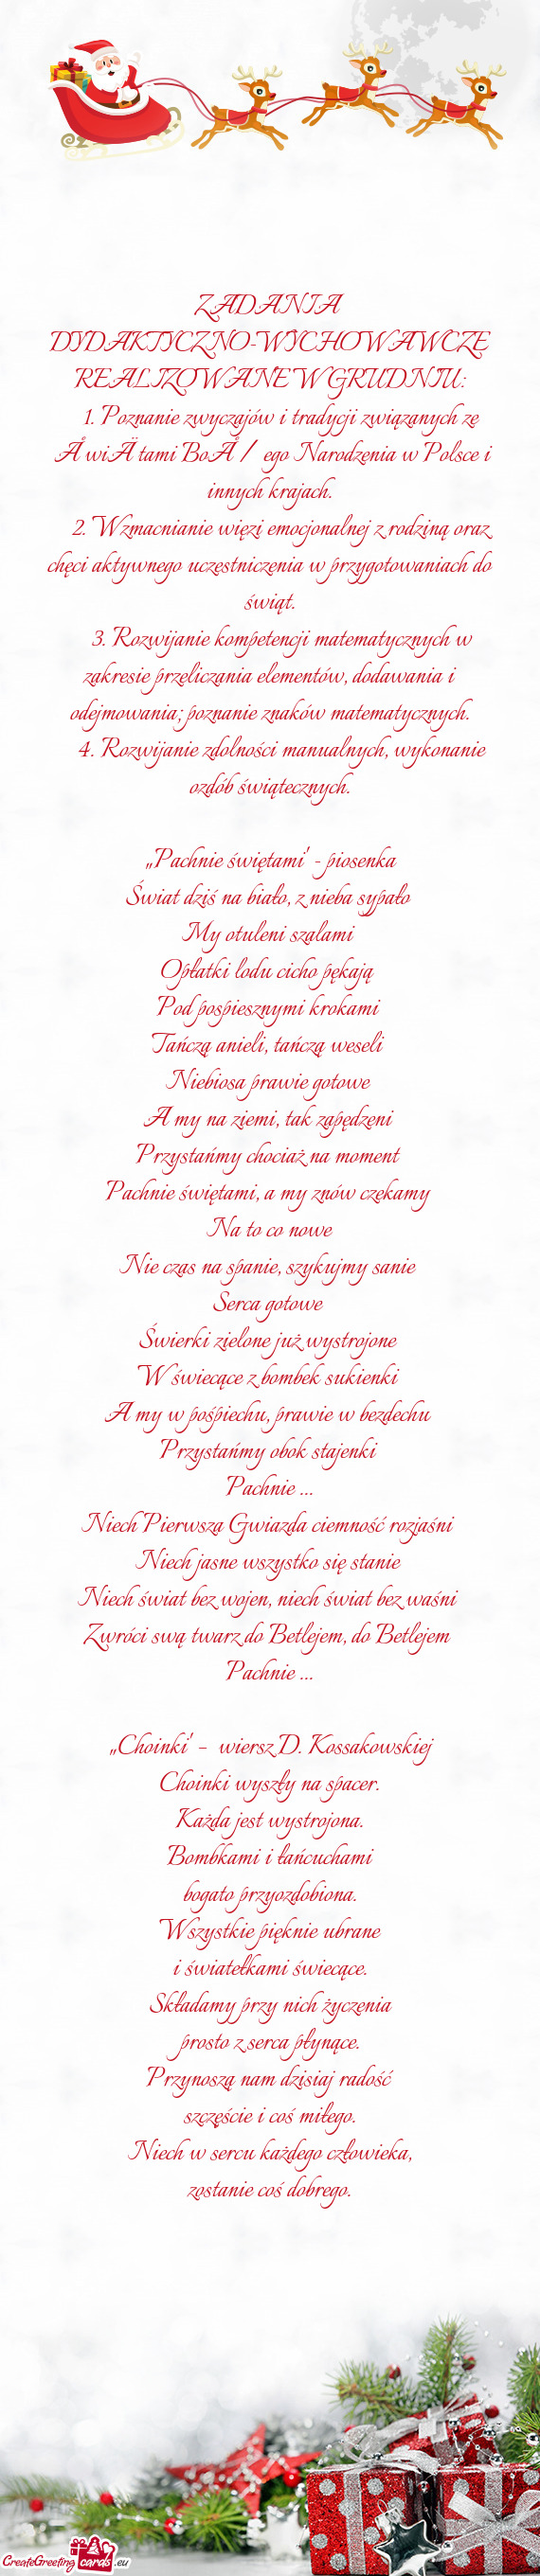 ZADANIA
DYDAKTYCZNO-WYCHOWAWCZE
REALIZOWANE W GRUDNIU:
1. Poznanie zwyczajów i tradycji związanych ze
Å wiÄ tami BoÅ / ego Narodzenia w Polsce i
innych krajach.
2. Wzmacnianie więzi emocjonalnej z rodziną oraz
chęci aktywnego uczestniczenia w przygotowaniach do
świąt.
3. Rozwijanie kompetencji matematycznych w
zakresie przeliczania elementów, dodawania i
odejmowania; poznanie znaków matematycznych.
4. Rozwijanie zdolności manualnych, wykonanie
ozdób świątecznych.
„Pachnie świętami" - piosenka
Świat dziś na biało, z nieba sypało
My otuleni szalami
Opłatki lodu cicho pękają
Pod pospiesznymi krokami
Tańczą anieli, tańczą weseli
Niebiosa prawie gotowe
A my na ziemi, tak zapędzeni
Przystańmy chociaż na moment
Pachnie świętami, a my znów czekamy
Na to co nowe
Nie czas na spanie, szykujmy sanie
Serca gotowe
Świerki zielone już wystrojone
W świecące z bombek sukienki
A my w pośpiechu, prawie w bezdechu
Przystańmy obok stajenki
Pachnie ...
Niech Pierwsza Gwiazda ciemność rozjaśni
Niech jasne wszystko się stanie
Niech świat bez wojen, niech świat bez waśni
Zwróci swą twarz do Betlejem, do Betlejem
Pachnie ...
„Choinki" – wiersz D. Kossakowskiej
Choinki wyszły na spacer.
Każda jest wystrojona.
Bombkami i łańcuchami
bogato przyozdobiona.
Wszystkie pięknie ubrane
i światełkami świecące.
Składamy przy nich życzenia
prosto z serca płynące.
Przynoszą nam dzisiaj radość
szczęście i coś miłego.
Niech w sercu każdego człowieka,
zostanie coś dobrego.
CreateGreeting cards .eu